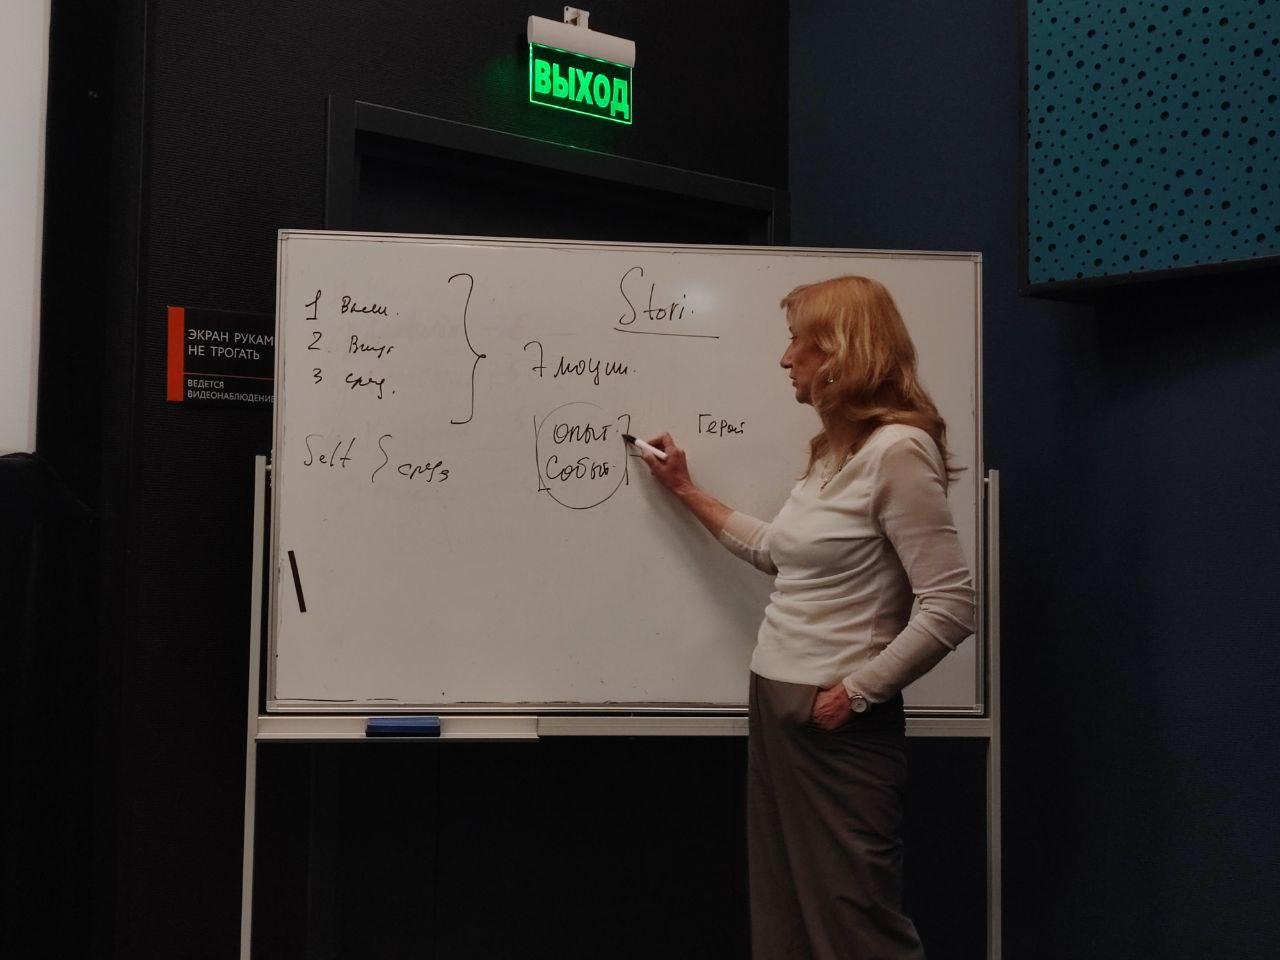 ВЫХОД
ЭКРАН РУКАМ
НЕ ТРОГАТЬ
ВЕДЕТСЯ
ВИДЕОНАБЛЮДЕНИЕ
Stori.
1
2
3 сред.
опыт.
Событ.
Герой
Self } среда